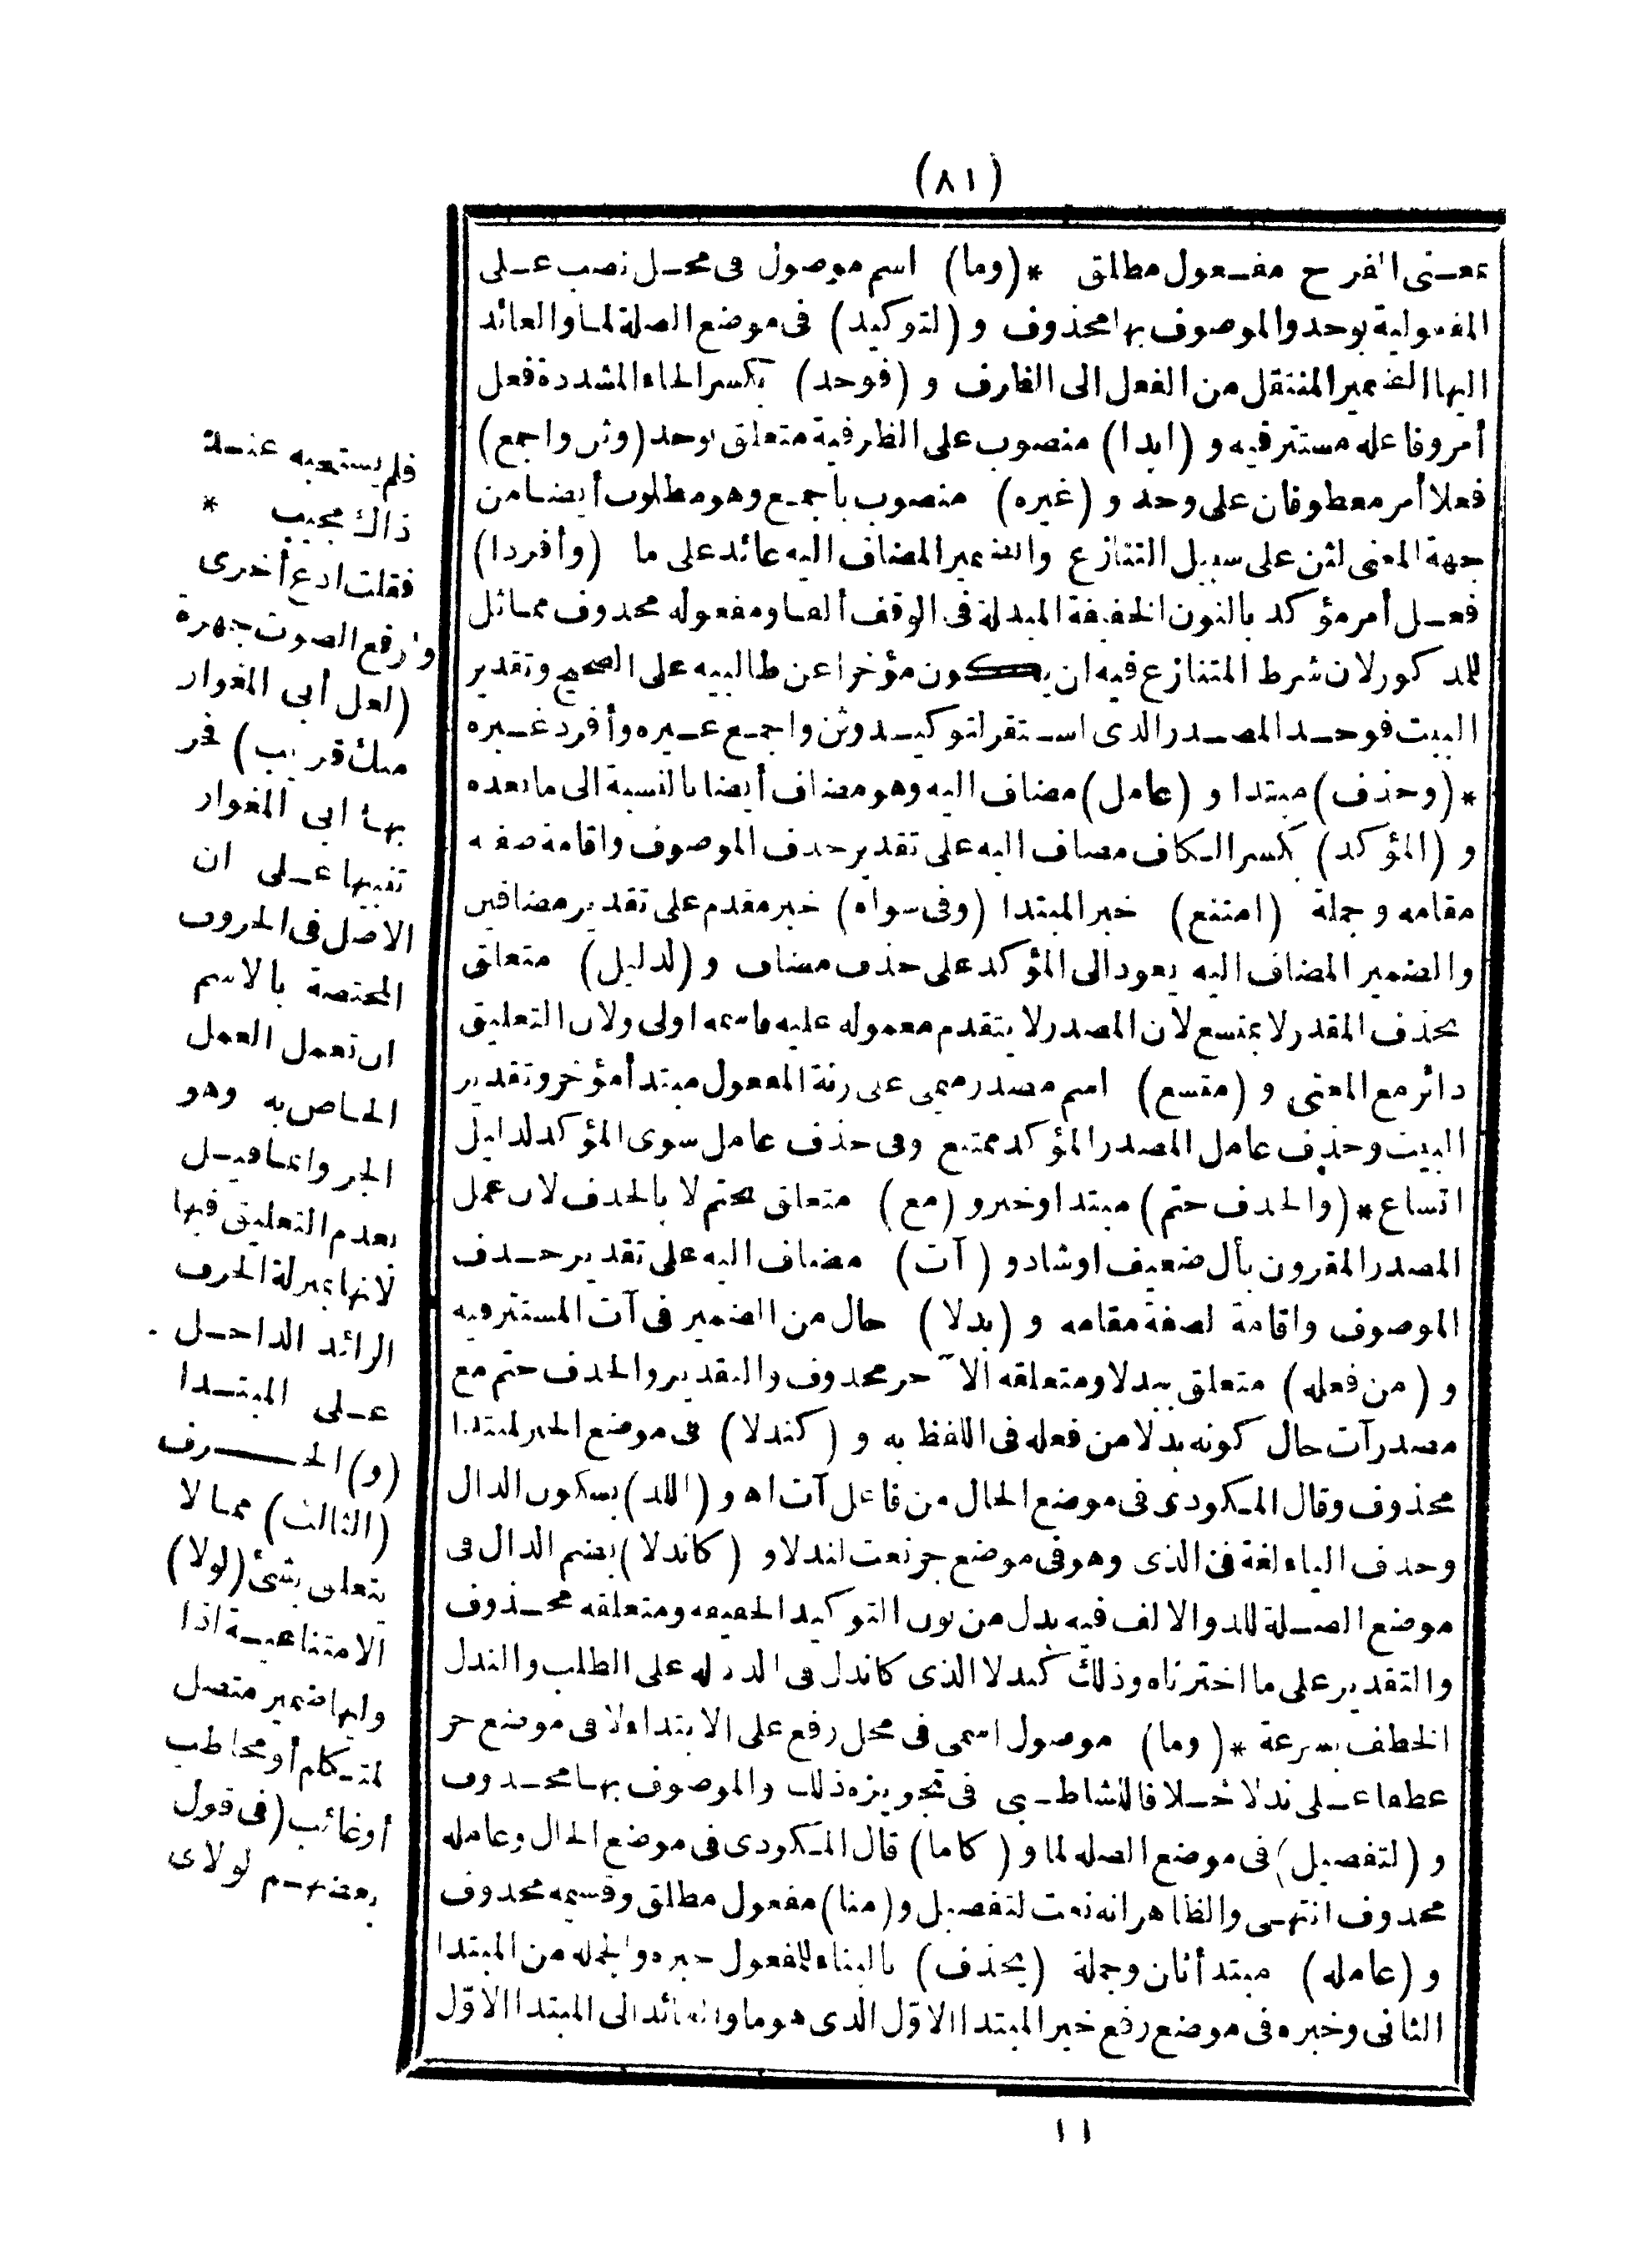 (٨١)
بمعنى الفرح مفعول مطلق * (وما) اسم موصول فى محل نصب على
المفعولية بوحد والموصوف بها محذوف و (لتوكيد) فى موضع الصلة لما والعائد
اليها الضمير المنتقل من الفعل الى الظرف و (فوحد) بكسر الحاء المشددة فعل
أمر وفاعله مستتر فيه و (ابدا) منصوب على الظرفية متعلق بوحد (وثن واجمع)
فعلا أمر معطوفان على وحد و (غيره) منصوب باجمع وهو مطلوب أيضا من
جهة المعنى لثن على سبيل التنازع والضمير المضاف اليه عائد على ما (وأفردا)
فعل أمر مؤكد بالنون الخفيفة المبدلة فى الوقف ألفا ومفعوله محذوف مماثل
للمذكور لان شرط المتنازع فيه ان يكون مؤخرا عن طالبيه على الصحيح وتقدير
البيت فوحد المصدر الذى استقر لتوكيد وثن واجمع غيره وأفرد غيره
* (وحذف) مبتدا و (عامل) مضاف اليه وهو مضاف أيضا بالنسبة الى ما بعده
و (المؤكد) بكسر الكاف مضاف اليه على تقدير حذف الموصوف واقامة صفته
مقامه وجملة (امتنع) خبر المبتدا (وفى سواه) خبر مقدم على تقدير مضافين
والضمير المضاف اليه يعود الى المؤكد على حذف مضاف و (لدليل) متعلق
بحذف المقدر لا بمتسع لان المصدر لا يتقدم معموله عليه فاسمه اولى ولان التعليق
دائر مع المعنى و (متسع) اسم مصدر ميمى على زنة المفعول مبتدأ مؤخر وتقدير
البيت وحذف عامل المصدر المؤكد ممتنع وفى حذف عامل سوى المؤكد لدليل
اتساع * (والحذف حتم) مبتدا وخبر و (مع) متعلق بحتم لا بالحذف لان عمل
المصدر المقرون بأل ضعيف او شاذ و (آت) مضاف اليه على تقدير حذف
الموصوف واقامة لصفة مقامه و (بدلا) حال من الضمير فى آت المستتر فيه
و (من فعله) متعلق ببدلا ومتعلقه الآخر محذوف والتقدير والحذف حتم مع
مصدر آت حال كونه بدلا من فعله فى اللفظ به و (كندلا) فى موضع الخبر لمبتدا
محذوف وقال المكودى فى موضع الحال من فاعل آت اه و (اللذ) بسكون الذال
وحذف الياء لغة فى الذى وهو فى موضع جر نعت لندلا و (كاندلا) بضم الدال فى
موضع الصلة للذ والالف فيه بدل من نون التوكيد الخفيفة ومتعلقه محذوف
والتقدير على ما اخترناه وذلك كندلا الذى كاندل فى الدلالة على الطلب والندل
الخطف بسرعة * (وما) موصول اسمى فى محل رفع على الابتداء لا فى موضع جر
عطفا على ندلا خلافا للشاطبى فى تجويزه ذلك والموصوف بها محذوف
و (لتفصيل) فى موضع الصله لما و (كاما) قال المكودى فى موضع الحال وعامله
محذوف انتهى والظاهر انه نعت لتفصيل و (منا) مفعول مطلق وقسيمه محذوف
و (عامله) مبتدأ ثان وجملة (يحذف) بالبناء للمفعول خبره والجملة من المبتدا
الثانى وخبره فى موضع رفع خبر المبتدا الاوّل الذى هو ما والعائد الى المبتدا الاوّل
١١
فلم يستجبه عند
ذاك مجيب *
فقلت ادع أخرى
وارفع الصوت جهرة
(لعل أبى المغوار
منك قريب) فجر
بها ابى المغوار
تنبيها على ان
الاصل فى الحروف
المختصة بالاسم
ان تعمل العمل
الخاص به وهو
الجر وانما قيل
بعدم التعليق فيها
لانها بمنزلة الحرف
الزائد الداخل
على المبتدا
(و) الحرف
(الثالث) مما لا
يتعلق بشئ (لولا)
الامتناعية اذا
وليها ضمير متصل
لمتكلم أو مخاطب
أو غائب (فى قول
بعضهم لولاى